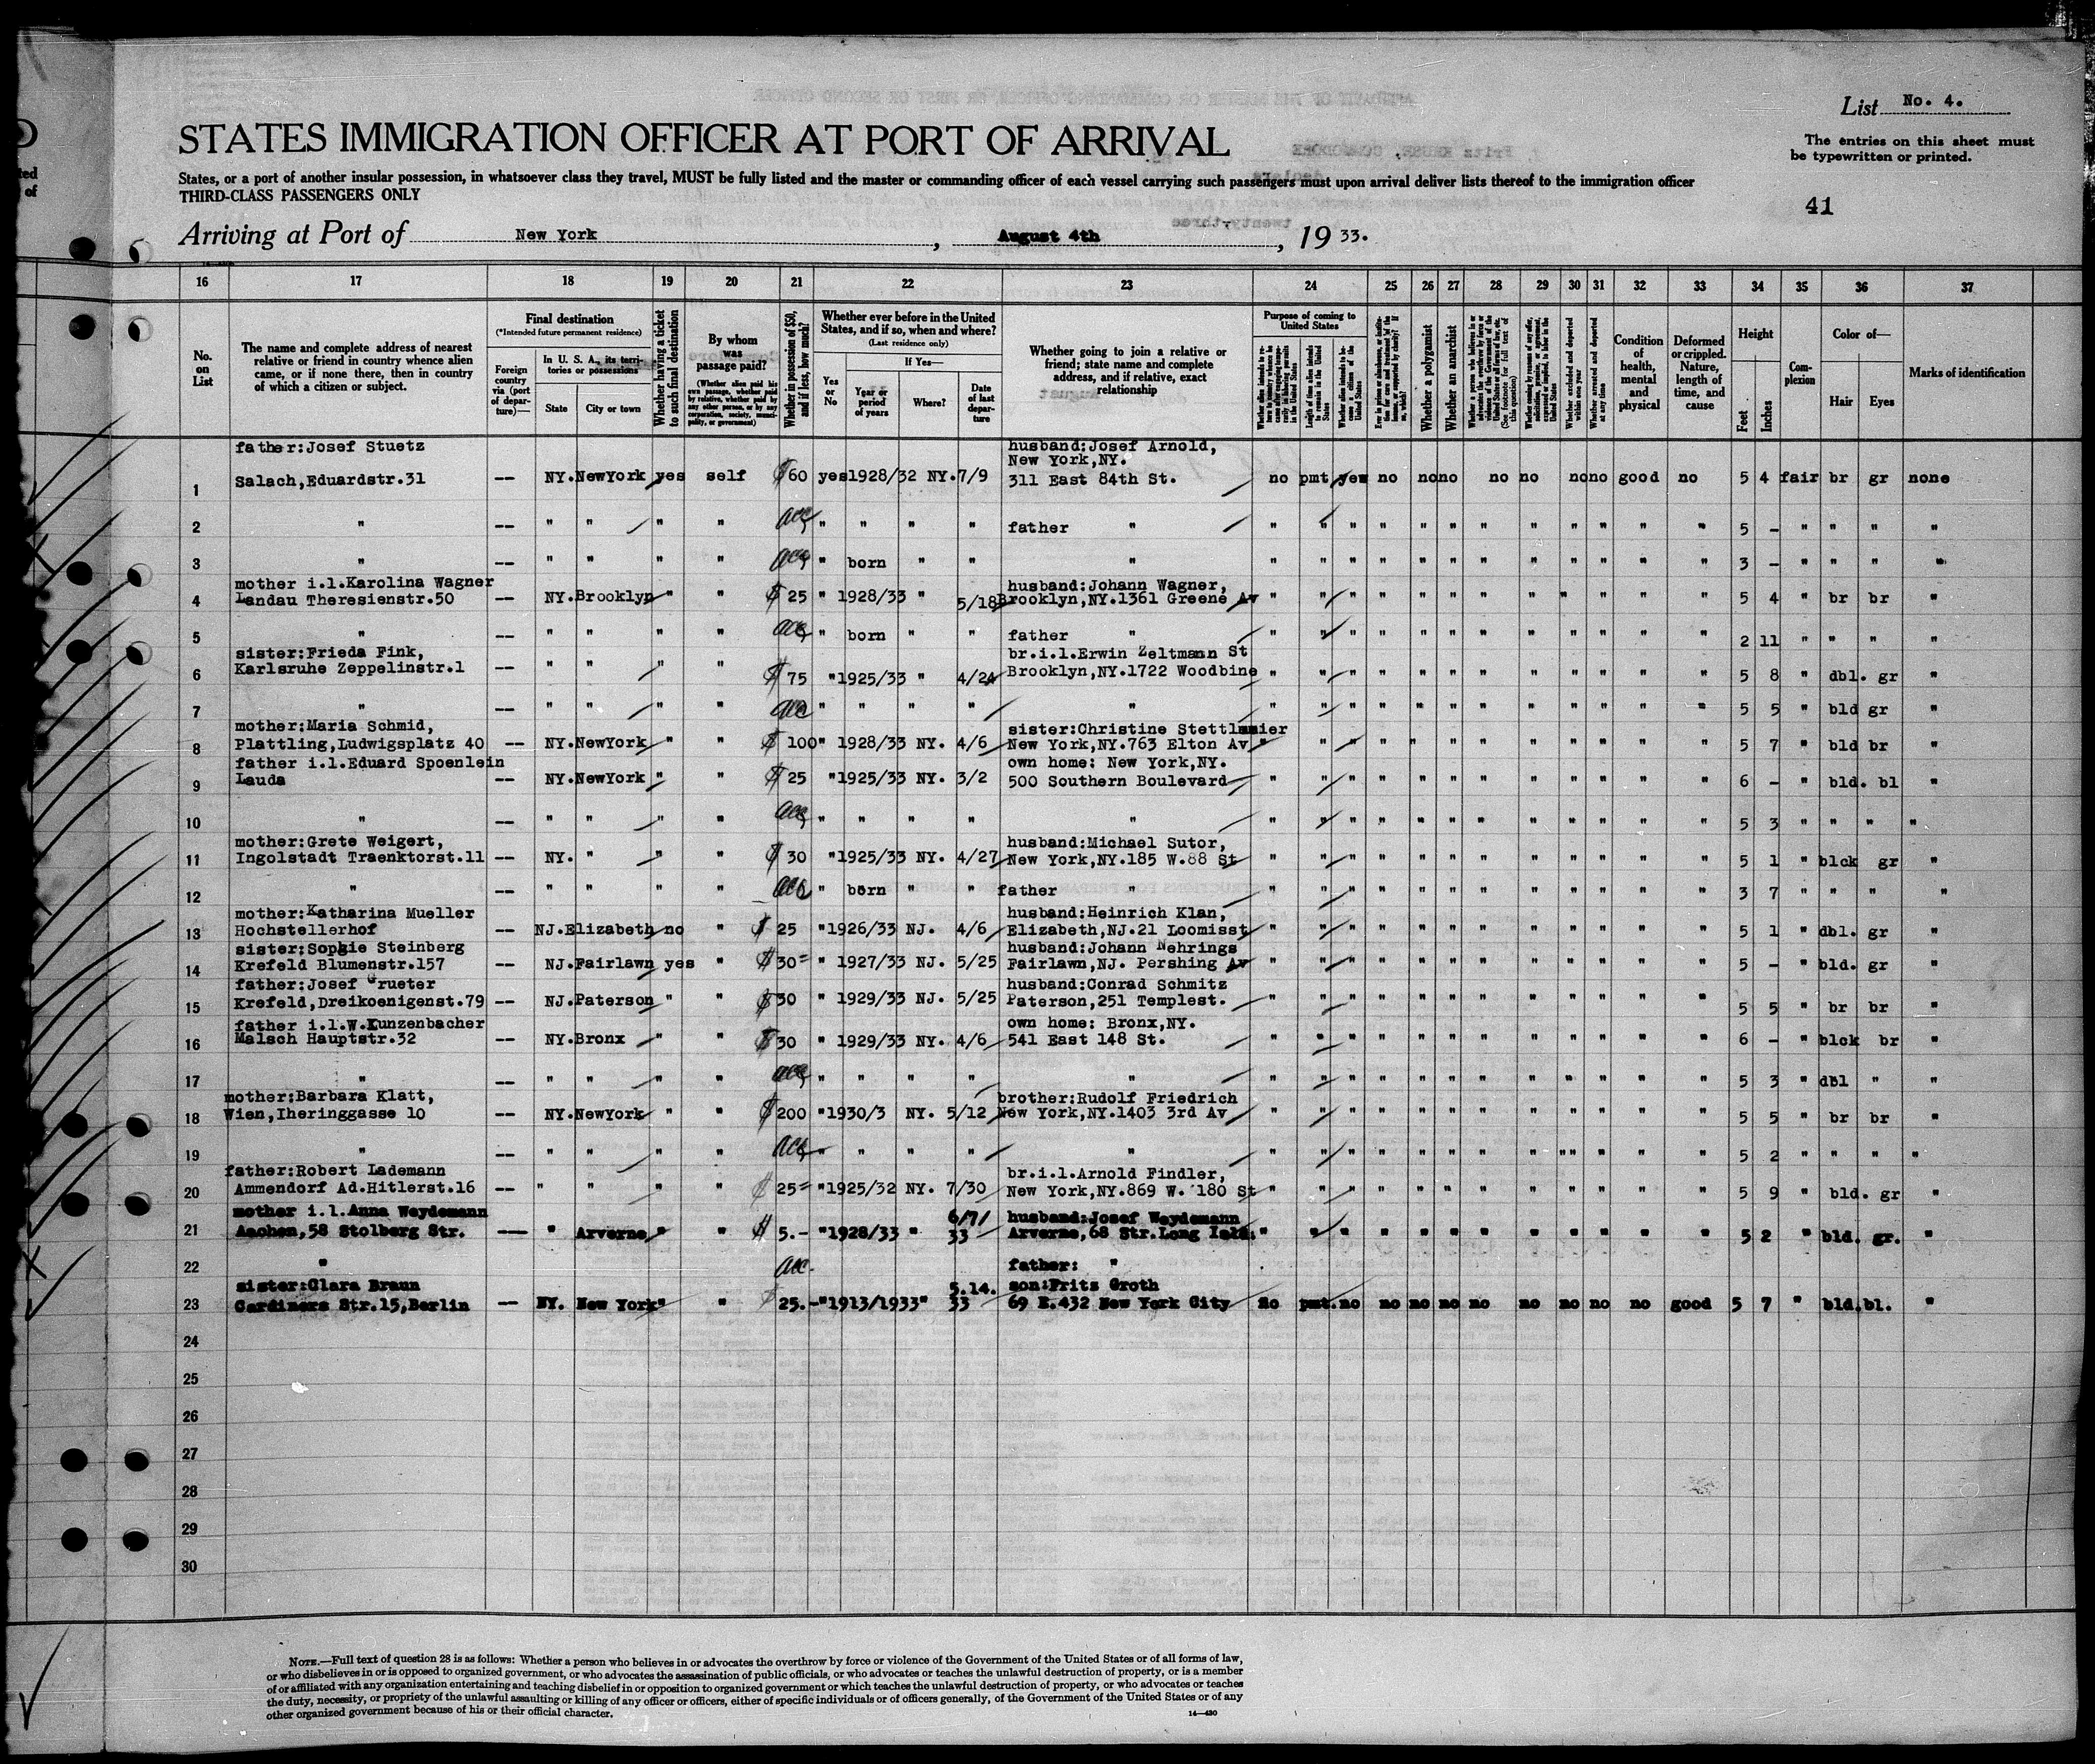 List No. 4.
STATES IMMIGRATION OFFICER AT PORT OF ARRIVAL
The entries on this sheet must
be typewritten or printed.
States, or a port of another insular possession, in whatsoever class they travel, MUST be fully listed and the master or commanding officer of each vessel carrying such passengers must upon arrival deliver lists thereof to the immigration officer
THIRD-CLASS PASSENGERS ONLY
41
Arriving at Port of New York, August 4th, 19 33.
16 17 18 19 20 21 22 23 24 25 26 27 28 29 30 31 32 33 34 35 36 37
No. on List
The name and complete address of nearest relative or friend in country whence alien came, or if none there, then in country of which a citizen or subject.
Final destination
(*Intended future permanent residence)
Foreign country via (port of departure)—
In U. S. A., its territories or possessions
State
City or town
Whether having a ticket to such final destination
By whom was passage paid?
(Whether alien paid his own passage, whether paid by relative, whether paid by any other person, or by any corporation, society, municipality, or government)
Whether in possession of $50, and if less, how much?
Whether ever before in the United States, and if so, when and where?
(Last residence only)
Yes or No
If Yes—
Year or period of years
Where?
Date of last departure
Whether going to join a relative or friend; state name and complete address, and if relative, exact relationship
Purpose of coming to United States
Length of time alien intends to remain in the United States
Whether alien intends to become a citizen of the United States
Whether a polygamist
Whether an anarchist
Whether excluded and deported within one year
Whether arrested and deported at any time
Condition of health, mental and physical
Deformed or crippled. Nature, length of time, and cause
Height
Feet
Inches
Complexion
Color of—
Hair
Eyes
Marks of identification
father:Josef Stuetz husband:Josef Arnold,
New York,NY.
1 Salach,Eduardstr.31 -- NY.NewYork yes self $60 yes1928/32 NY.7/9 311 East 84th St. no pmt yes no no no no no no no good no 5 4 fair br gr none
2 " -- " " " " acc " " " " father " " " " " " " " " " " " " 5 - " " " "
3 " -- " " " " acc " born " " " " " " " " " " " " " " " 3 - " " " "
mother i.l.Karolina Wagner husband:Johann Wagner,
4 Landau Theresienstr.50 -- NY.Brooklyn " " $ 25 " 1928/33 " 5/18 Brooklyn,NY.1361 Greene Av " " " " " " " " " " " " 5 4 " br br "
5 " -- " " " " acc " born " " father " " " " " " " " " " " " " 2 11 " " " "
sister:Frieda Fink, br.i.l.Erwin Zeltmann St
6 Karlsruhe Zeppelinstr.1 -- " " " " $ 75 "1925/33 " 4/24 Brooklyn,NY.1722 Woodbine " " " " " " " " " " " " 5 8 " dbl. gr "
7 " -- " " " " acc " " " " " " " " " " " " " " " " " 5 5 " bld gr "
mother:Maria Schmid, sister:Christine Stettlmaier
8 Plattling,Ludwigsplatz 40 -- NY.NewYork " " $ 100 " 1928/33 NY. 4/6 New York,NY.763 Elton Av " " " " " " " " " " " " 5 7 " bld br "
father i.l.Eduard Spoenlein own home: New York,NY.
9 Lauda -- NY.NewYork " " $ 25 "1925/33 NY. 3/2 500 Southern Boulevard " " " " " " " " " " " " 6 - " bld. bl "
10 " -- " " " " acc " " " " " " " " " " " " " " " " " 5 3 " " " "
mother:Grete Weigert, husband:Michael Sutor,
11 Ingolstadt Traenktorst.11 -- NY. " " " $ 30 "1925/33 NY. 4/27 New York,NY.185 W.88 St " " " " " " " " " " " " 5 1 " blck gr "
12 " -- " " " " acc " born " " father " " " " " " " " " " " " " 3 7 " " " "
mother:Katharina Mueller husband:Heinrich Klan,
13 Hochstellerhof NJ.Elizabeth no " $ 25 "1926/33 NJ. 4/6 Elizabeth,NJ.21 Loomisst " " " " " " " " " " " " 5 1 " dbl. gr "
sister:Sophie Steinberg husband:Johann Nehrings
14 Krefeld Blumenstr.157 -- NJ.Fairlawn yes " $ 30 " 1927/33 NJ. 5/25 Fairlawn,NJ. Pershing Av " " " " " " " " " " " " 5 - " bld. gr "
father:Josef Grueter husband:Conrad Schmitz
15 Krefeld,Dreikoenigenst.79 -- NJ.Paterson " " $30 " 1929/33 NJ. 5/25 Paterson,251 Templest. " " " " " " " " " " " " 5 5 " br br "
father i.l.W.Kunzenbacher own home: Bronx,NY.
16 Malsch Hauptstr.32 -- NY.Bronx " " $30 " 1929/33 NY. 4/6 541 East 148 St. " " " " " " " " " " " " 6 - " blck br "
17 " -- " " " " acc " " " " " " " " " " " " " " " " " 5 3 " dbl " "
mother:Barbara Klatt, brother:Rudolf Friedrich
18 Wien,Iheringgasse 10 -- NY.NewYork " " $200 "1930/3 NY. 5/12 New York,NY.1403 3rd Av " " " " " " " " " " " " 5 5 " br br "
19 " -- " " " " acc " " " " " " " " " " " " " " " " " 5 2 " " " "
father:Robert Lademann br.i.l.Arnold Findler,
20 Ammendorf Ad.Hitlerst.16 -- " " " " $ 25 "1925/32 NY. 7/30 New York,NY.869 W. 180 St " " " " " " " " " " " " 5 9 " bld. gr "
mother i.l.Anna Weydemann 6/7/ husband:Josef Weydemann
21 Aachen,58 Stolberg Str. -- " Arverne " " $ 5.- "1928/33 " 33 Arverne,68 Str.Long Isld. " " " " " " " " " " " " 5 2 " bld. gr. "
22 " acc. father: "
sister:Clara Braun 5.14. son:Frits Groth
23 Gardiners Str.15,Berlin -- NY. New York " " $ 25.- "1913/1933" 33 69 E.432 New York City no pmt. no no no no no no no no no good 5 7 " bld.bl. "
24
25
26
27
28
29
30
NOTE.—Full text of question 28 is as follows: Whether a person who believes in or advocates the overthrow by force or violence of the Government of the United States or of all forms of law,
or who disbelieves in or is opposed to organized government, or who advocates the assassination of public officials, or who advocates or teaches the unlawful destruction of property, or is a member
of or affiliated with any organization entertaining and teaching disbelief in or opposition to organized government or which teaches the unlawful destruction of property, or who advocates or teaches
the duty, necessity, or propriety of the unlawful assaulting or killing of any officer or officers, either of specific individuals or of officers generally, of the Government of the United States or of any
other organized government because of his or their official character.
14—430